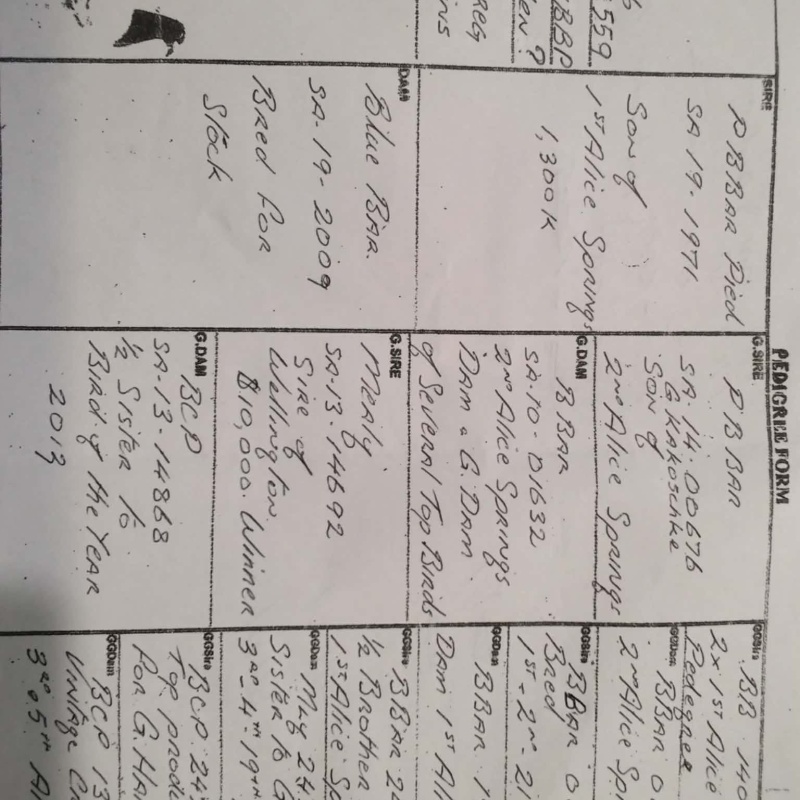 PEDIGREE FORM
559
BBP
en ?
REG
ins
SIRE
PBBAR Pied
SA 19-1971
Son of
1ST Alice Springs
1,300K
DAM
Blue BAR.
SA-19-2009
Bred For
Stock
G.SIRE
PBBAR
SA-14-00676
G KAKOSCHKE
SON of
2nd Alice Springs
G.DAM
BBAR
SA-10-01632
2nd Alice Springs
DAM & G.DAM
of Several Top Birds
G.SIRE
Mealy
SA-13-14692
Sire of
Wellington
$10,000. Winner
G.DAM
BCP
SA-13-14868
½ Sister to
Bird of the Year
2013
GGSire
BB 140
2x 1st Alice
Pedegree
GGDam
BBAR 0
2nd Alice Sp.
GGSire
BBAR 0
Bred
1st - 2nd - 21
GGDam
BBAR 1
DAM 1st Al
GGSire
BBAR 2
½ Brother
1st Alice Sp
GGDam
Mly 24
Sister to G
3RD - 4TH - 19TH
GGSire
BCP. 24
Top produ
For G. HA
GGDam
BCP 13
Vintage C
3RD. 5TH Al